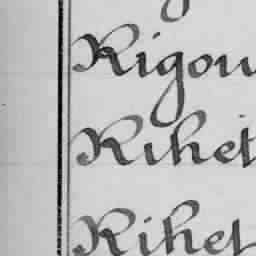 Rigou
Rihet
Rihet